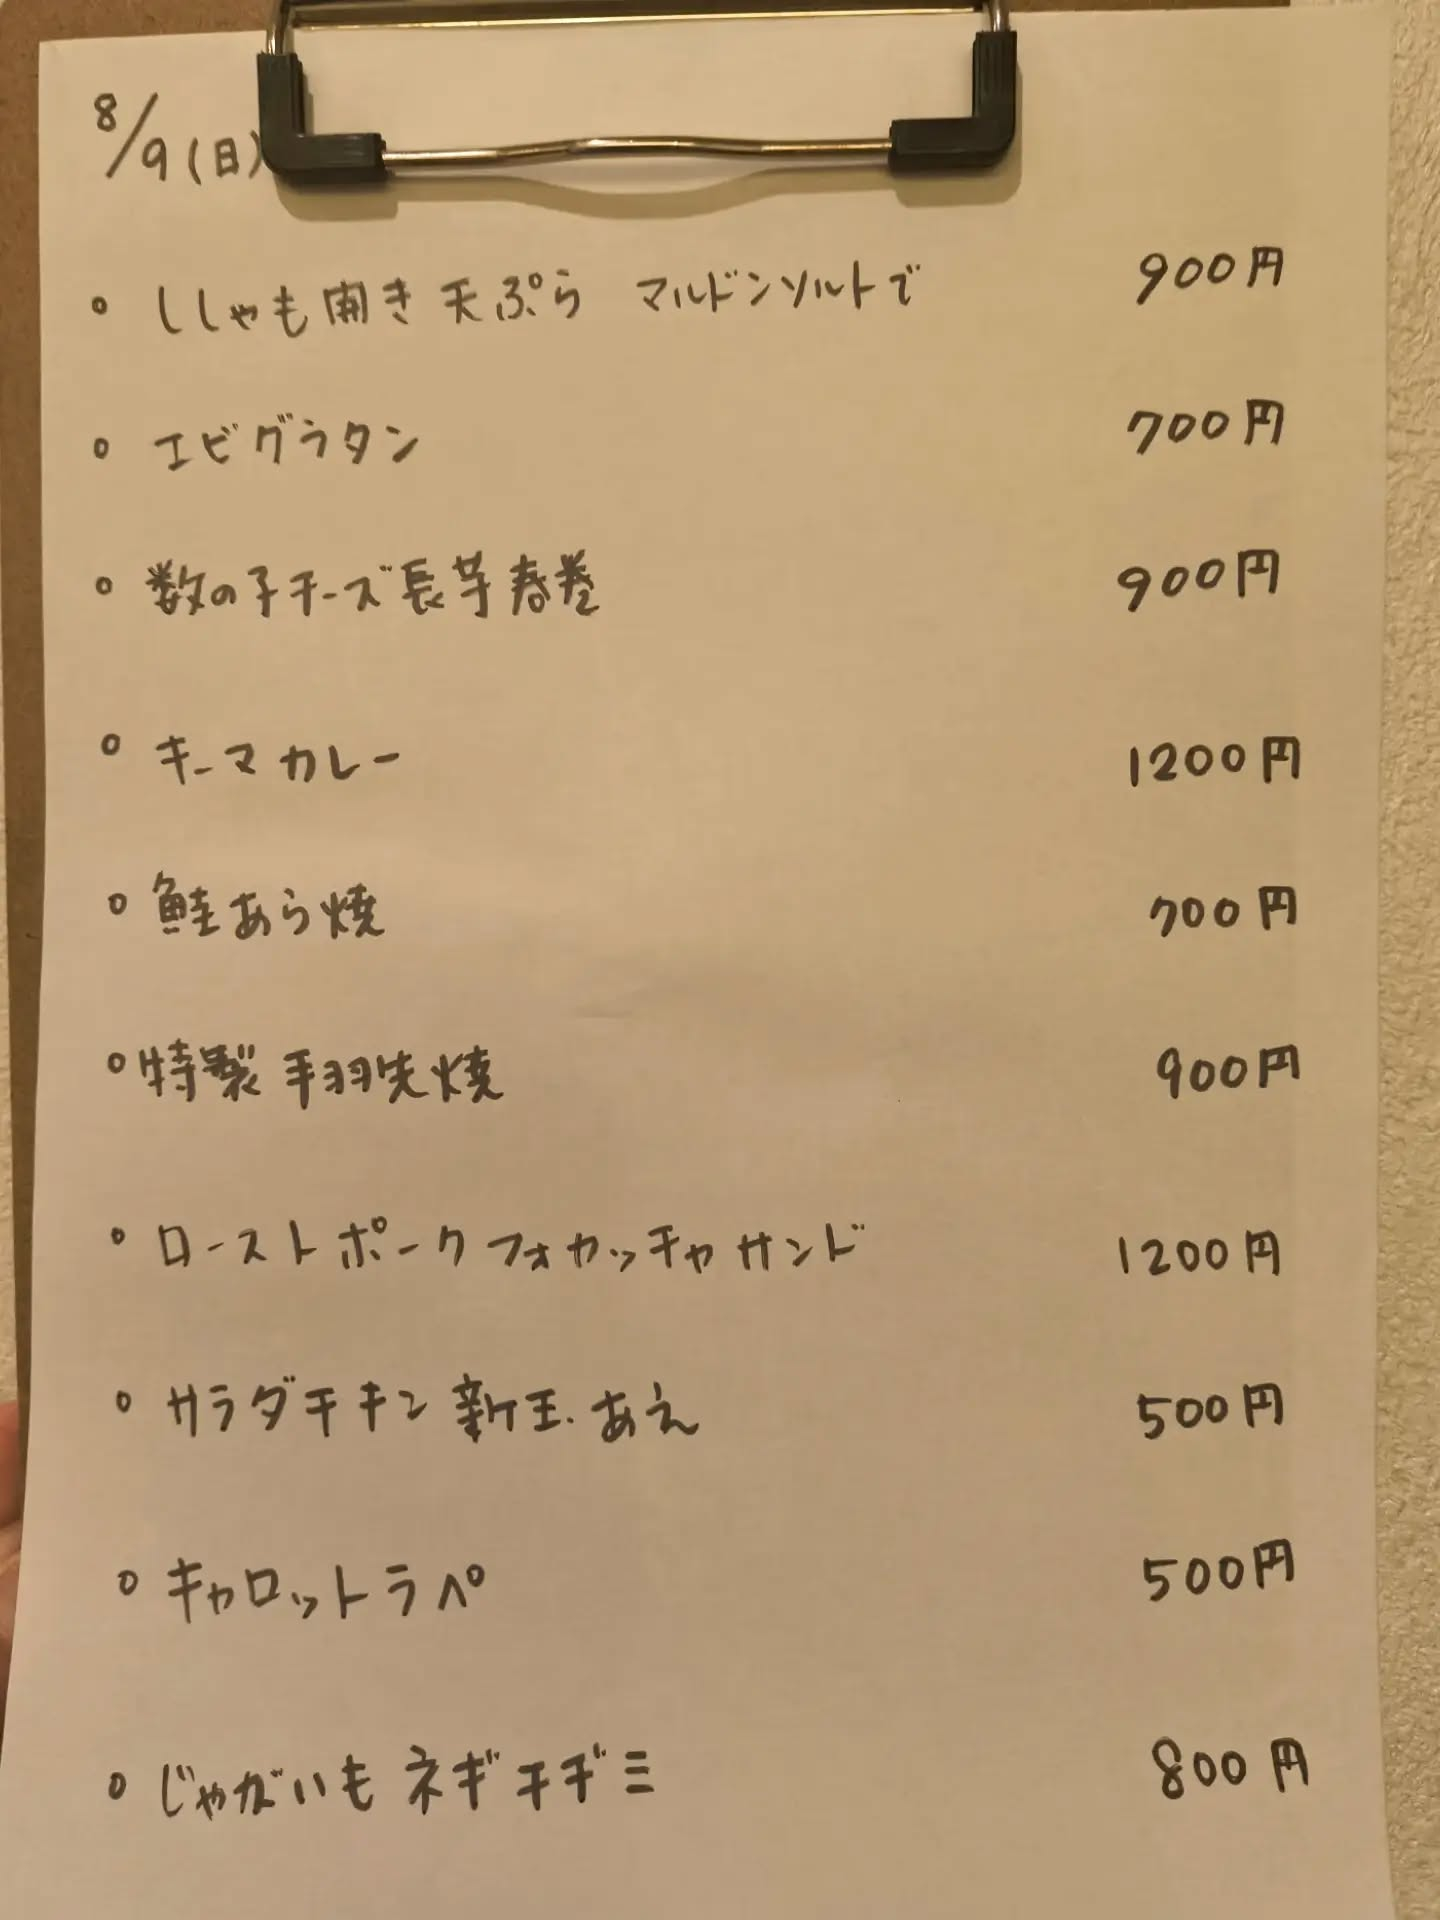 8/9(日)
○ ししゃも開き天ぷら マルドンソルトで 900円
○ エビグラタン 700円
○ 数の子チーズ長芋春巻 900円
○ キーマカレー 1200円
○ 鮭あら焼 700円
○ 特製 手羽先焼 900円
○ ローストポークフォカッチャサンド 1200円
○ サラダチキン新玉あえ 500円
○ キャロットラペ 500円
○ じゃがいもネギチヂミ 800円